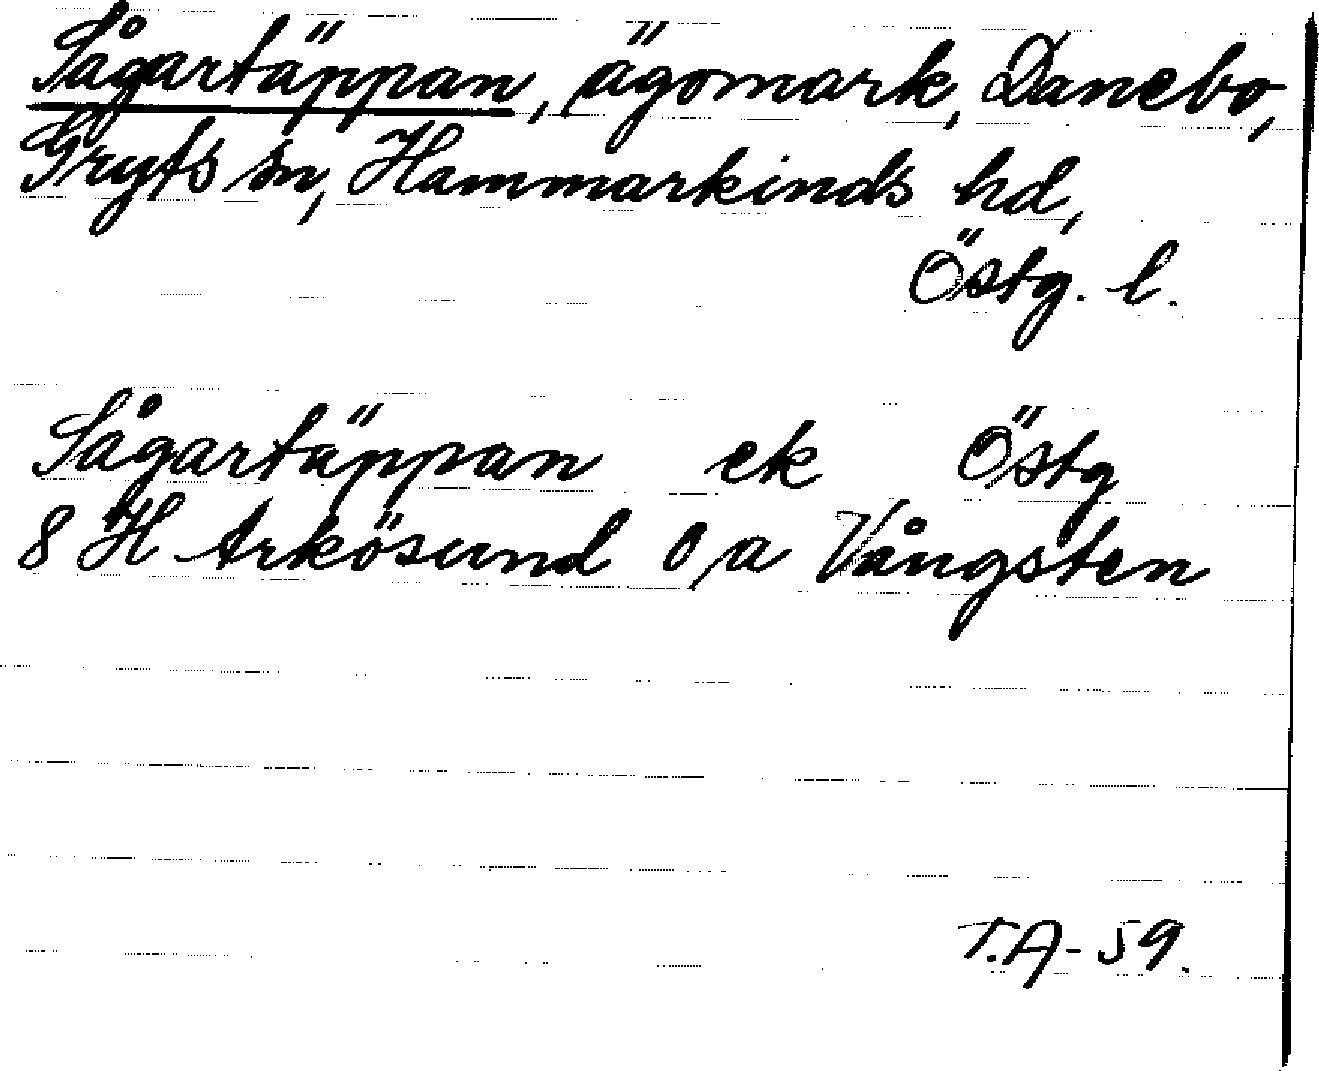 Sågartäppan, ägomark, Danebo,
Gryts sn, Hammarkinds hd,
Östg. l.
Sågartäppan ek Östg
8 H Arkösund O, a Vångsten
T.A-59.